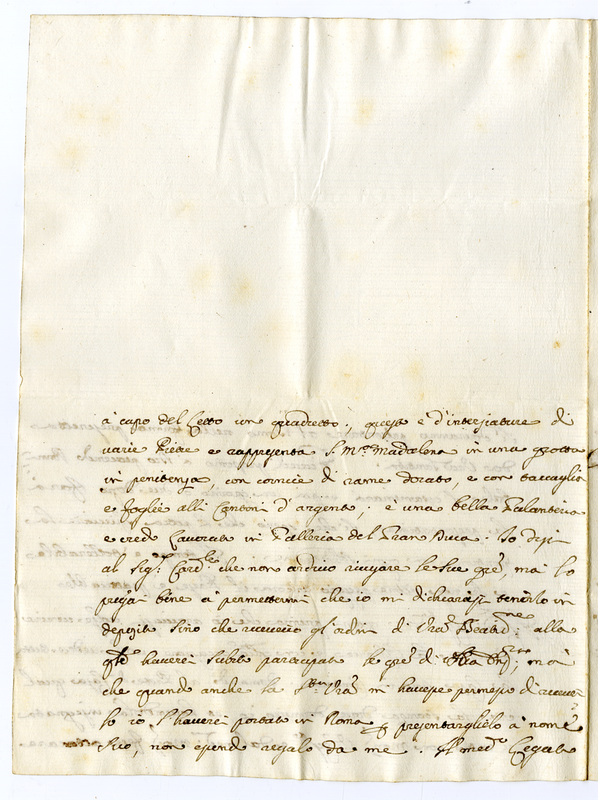 à capo del Letto un quadretto; questo è d'intersiature di
varie Pietre e rappresenta S. M.ª Madalena in una grotta
in penitenza, con cornice di rame dorato, e con
e foglie alli Cantoni d'argento: è una bella Galanteria
e credo Lavorata in Galleria del Gran Duca. Io dissi
al Sig.r Card.le che non ardivo ricusare le sue gr.e ma lo
pregai bene à permettermi che io mi dichiarassi tenerlo in
deposito sino che ricevevo gl'ordini di Vra Beatid.ne alla
q.le haverei subito participato le gr.e di Em.za; mà
che quando anche la S.tà Vra mi havesse permesso di ricever
lo io l'haverei portato in Roma p presentarglielo à nome
suo, non essendo regalo da me. Il med.o Legato